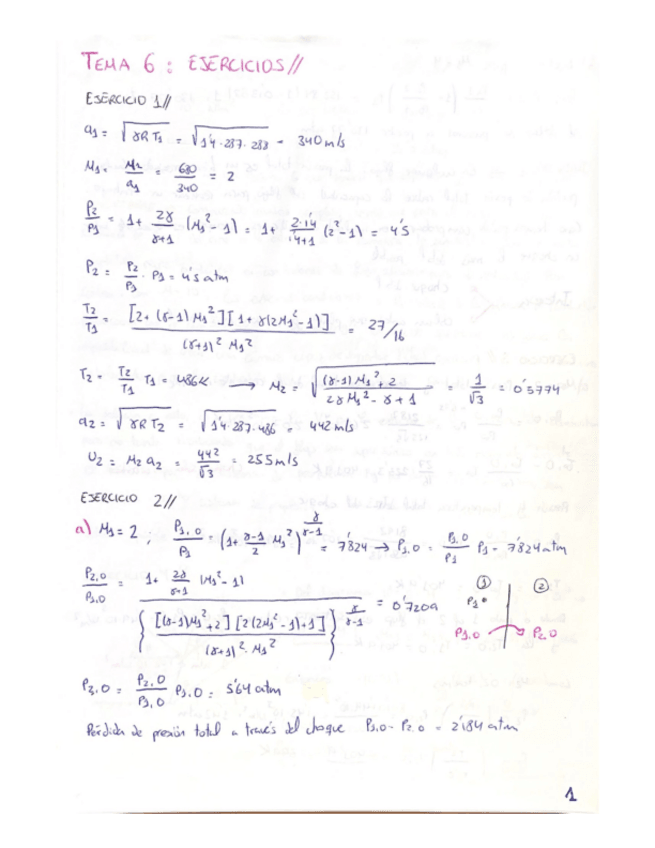 TEMA 6 : EJERCICIOS //
EJERCICIO 1 //
a1 = √(γ R T1) = √(1'4 · 287 · 288) = 340 m/s
M1 = M1/a1 = 680/340 = 2
P2/P1 = 1 + 2γ/(γ+1) (M1² - 1) = 1 + 2·1'4/(1'4+1) (2² - 1) = 4'5
P2 = P2/P1 · P1 = 4'5 atm
T2/T1 = [2 + (γ-1) M1²][1 + γ(2M1² - 1)] / (γ+1)² M1² = 27/16
T2 = T2/T1 T1 = 486K → M2 = √((γ-1) M1² + 2 / 2γ M1² - γ + 1) = 1/√3 = 0'5774
a2 = √(γ R T2) = √(1'4 · 287 · 486) = 442 m/s
U2 = M2 a2 = 442/√3 = 255 m/s
EJERCICIO 2 //
a) M1 = 2 ; P1,0/P1 (1 + (γ-1)/2 M1²)^(γ/(γ-1)) = 7'824 → P1,0 = P1,0/P1 P1 = 7'824 atm
P2,0/P1,0 = 1 + 2γ/(γ+1) (M1² - 1) / { [(γ-1)M1² + 2] [2(2M1² - 1) + 1] / (γ+1)² · M1² }^(γ/(γ-1)) = 0'7209
① ②
P1
P1,0 P2,0
P2,0 = P2,0/P1,0 P1,0 = 5'64 atm
Pérdida de presión total a través del choque P1,0 - P2,0 = 2'184 atm
1